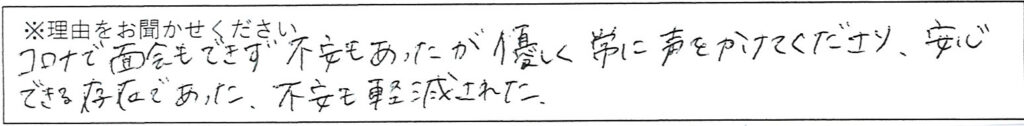 ※理由をお聞かせください
コロナで面会もできず不安もあったが優しく常に声をかけてくださり、安心
できる存在であった、不安も軽減された、